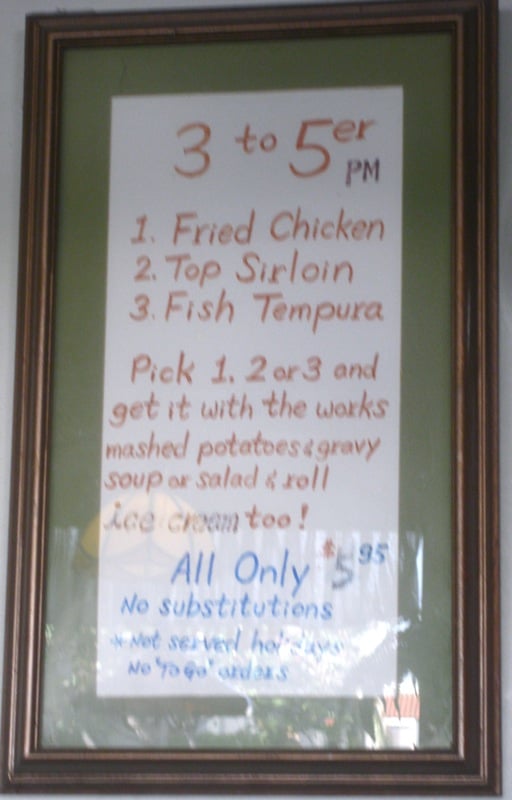 3 to 5er
PM
1. Fried Chicken
2. Top Sirloin
3. Fish Tempura
Pick 1. 2 or 3 and
get it with the works
mashed potatoes & gravy
soup or salad & roll
ice cream too!
All Only $5 95
No substitutions
*Not served holidays
No "To Go" orders